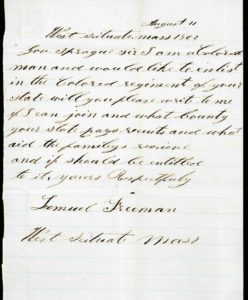 August 11
West Scituate mass 1862
Gov Sprague sir I am a Colored
man and would like to inlist
in the Colored regiment of your
state will you please write to me
if I can join and what bounty
your state pays recruits and what
aid the familys receive
and if should be entitled
to it, yours Respectfuly
Lemuel Freeman
West Scituate Mass